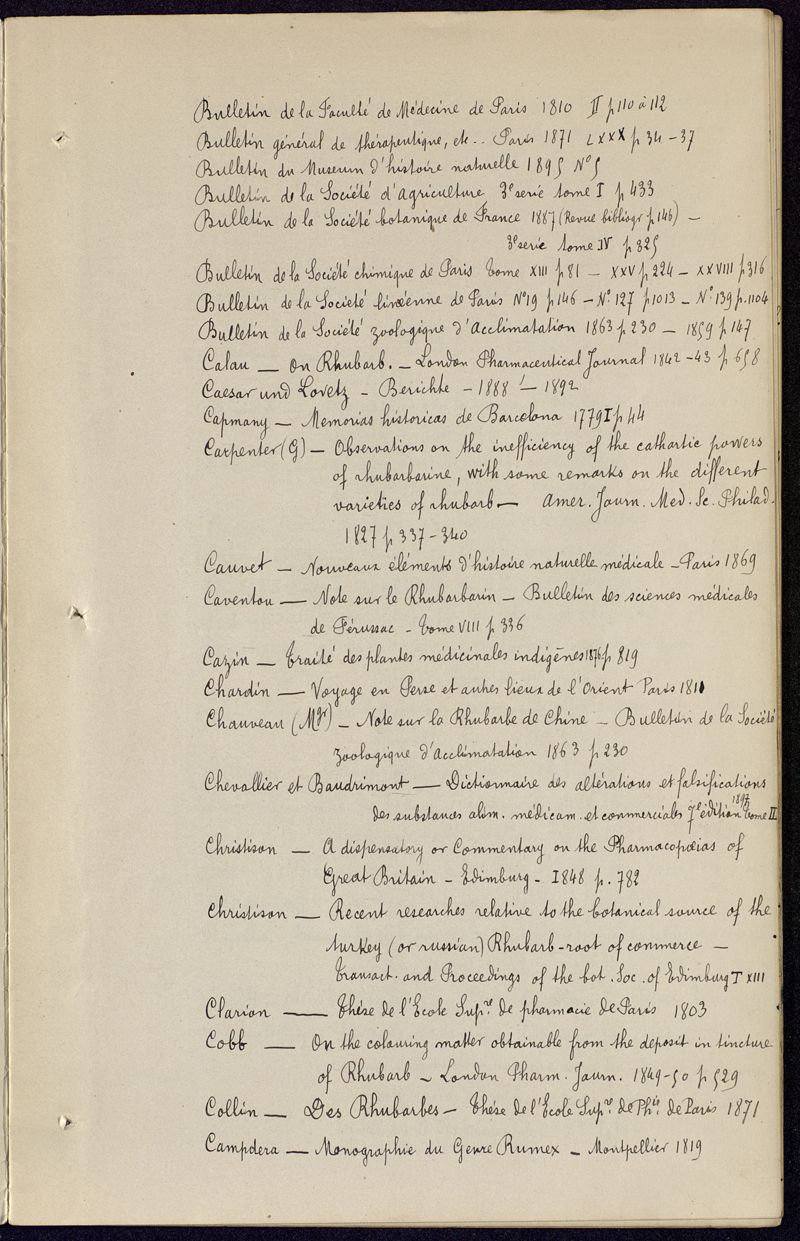 Bulletin de la Faculté de Médecine de Paris 1810 II p 110 à 112
Bulletin général de thérapeutique, etc.. Paris 1871 LXXX p 34-37
Bulletin du Museum d'histoire naturelle 1895 N°5
Bulletin de la Société d'agriculture 3e serie tome I p 433
Bulletin de la Société botanique de France 1887 (Revue bibliogr p 146) —
3e serie tome IV p 325
Bulletin de la Société chimique de Paris tome XIII p 81 — XXV p 224 — XXVIII p 316
Bulletin de la Societé linéenne de Paris N°19 p 146 — N° 127 p 1013 — N° 139 p. 1104
Bulletin de la Société zoologique d'Acclimatation 1863 p 230 — 1859 p 147
Calau — On Rhubarb. — London Pharmaceutical Journal 1842-43 p 658
Caesar und Loretz — Berichte — 1888 — 1892
Capmany — Memorias historicas de Barcelona 1779 I p 44
Carpenter (G) — Observations on the inefficiency of the cathartic powers
of rhubarbarine, with some remarks on the different
varieties of rhubarb — Amer. Journ. Med. Sc. Philad.
1827 p 337-340
Cauvet — Nouveaux éléments d'histoire naturelle médicale — Paris 1869
Caventou — Note sur le Rhubarbarin — Bulletin des sciences médicales
de Férussac — tome VIII p 336
Cazin — Traité des plantes médicinales indigènes 1876 p 819
Chardin — Voyage en Perse et autres lieux de l'Orient Paris 1811
Chauveau (Mgr) — Note sur la Rhubarbe de Chine — Bulletin de la Société
zoologique d'Acclimatation 1863 p 230
Chevallier et Baudrimont — Dictionnaire des altérations et falsifications
des substances alim. médicam. et commerciales 7e édition 1897 tome II
Christison — A dispensatory or Commentary on the Pharmacopœias of
Great Britain — Edimburg — 1848 p. 782
Christison — Recent researches relative to the botanical source of the
turkey (or russian) Rhubarb-root of commerce —
Transact. and Proceedings of the bot. Soc. of Edimburg T XIII
Clarion — Thèse de l'Ecole Supre de pharmacie de Paris 1803
Cobb — On the colouring matter obtainable from the deposit in tincture
of Rhubarb — London Pharm. Journ. 1849-50 p 529
Collin — Des Rhubarbes — Thèse de l'Ecole Supre de Phie de Paris 1871
Campdera — Monographie du Genre Rumex — Montpellier 1819